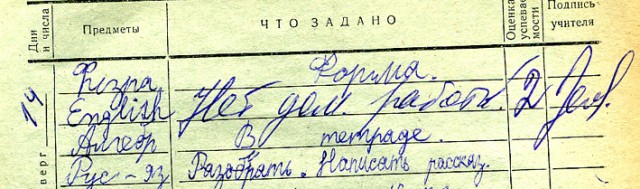 Дни и числа Предметы ЧТО ЗАДАНО Оценка успевае- мости Подпись учителя
14 Физра Форма.
English Нет дом. работы. 2
Алгебр В тетраде.
верг Рус-яз Разобрать. Написать рассказ.